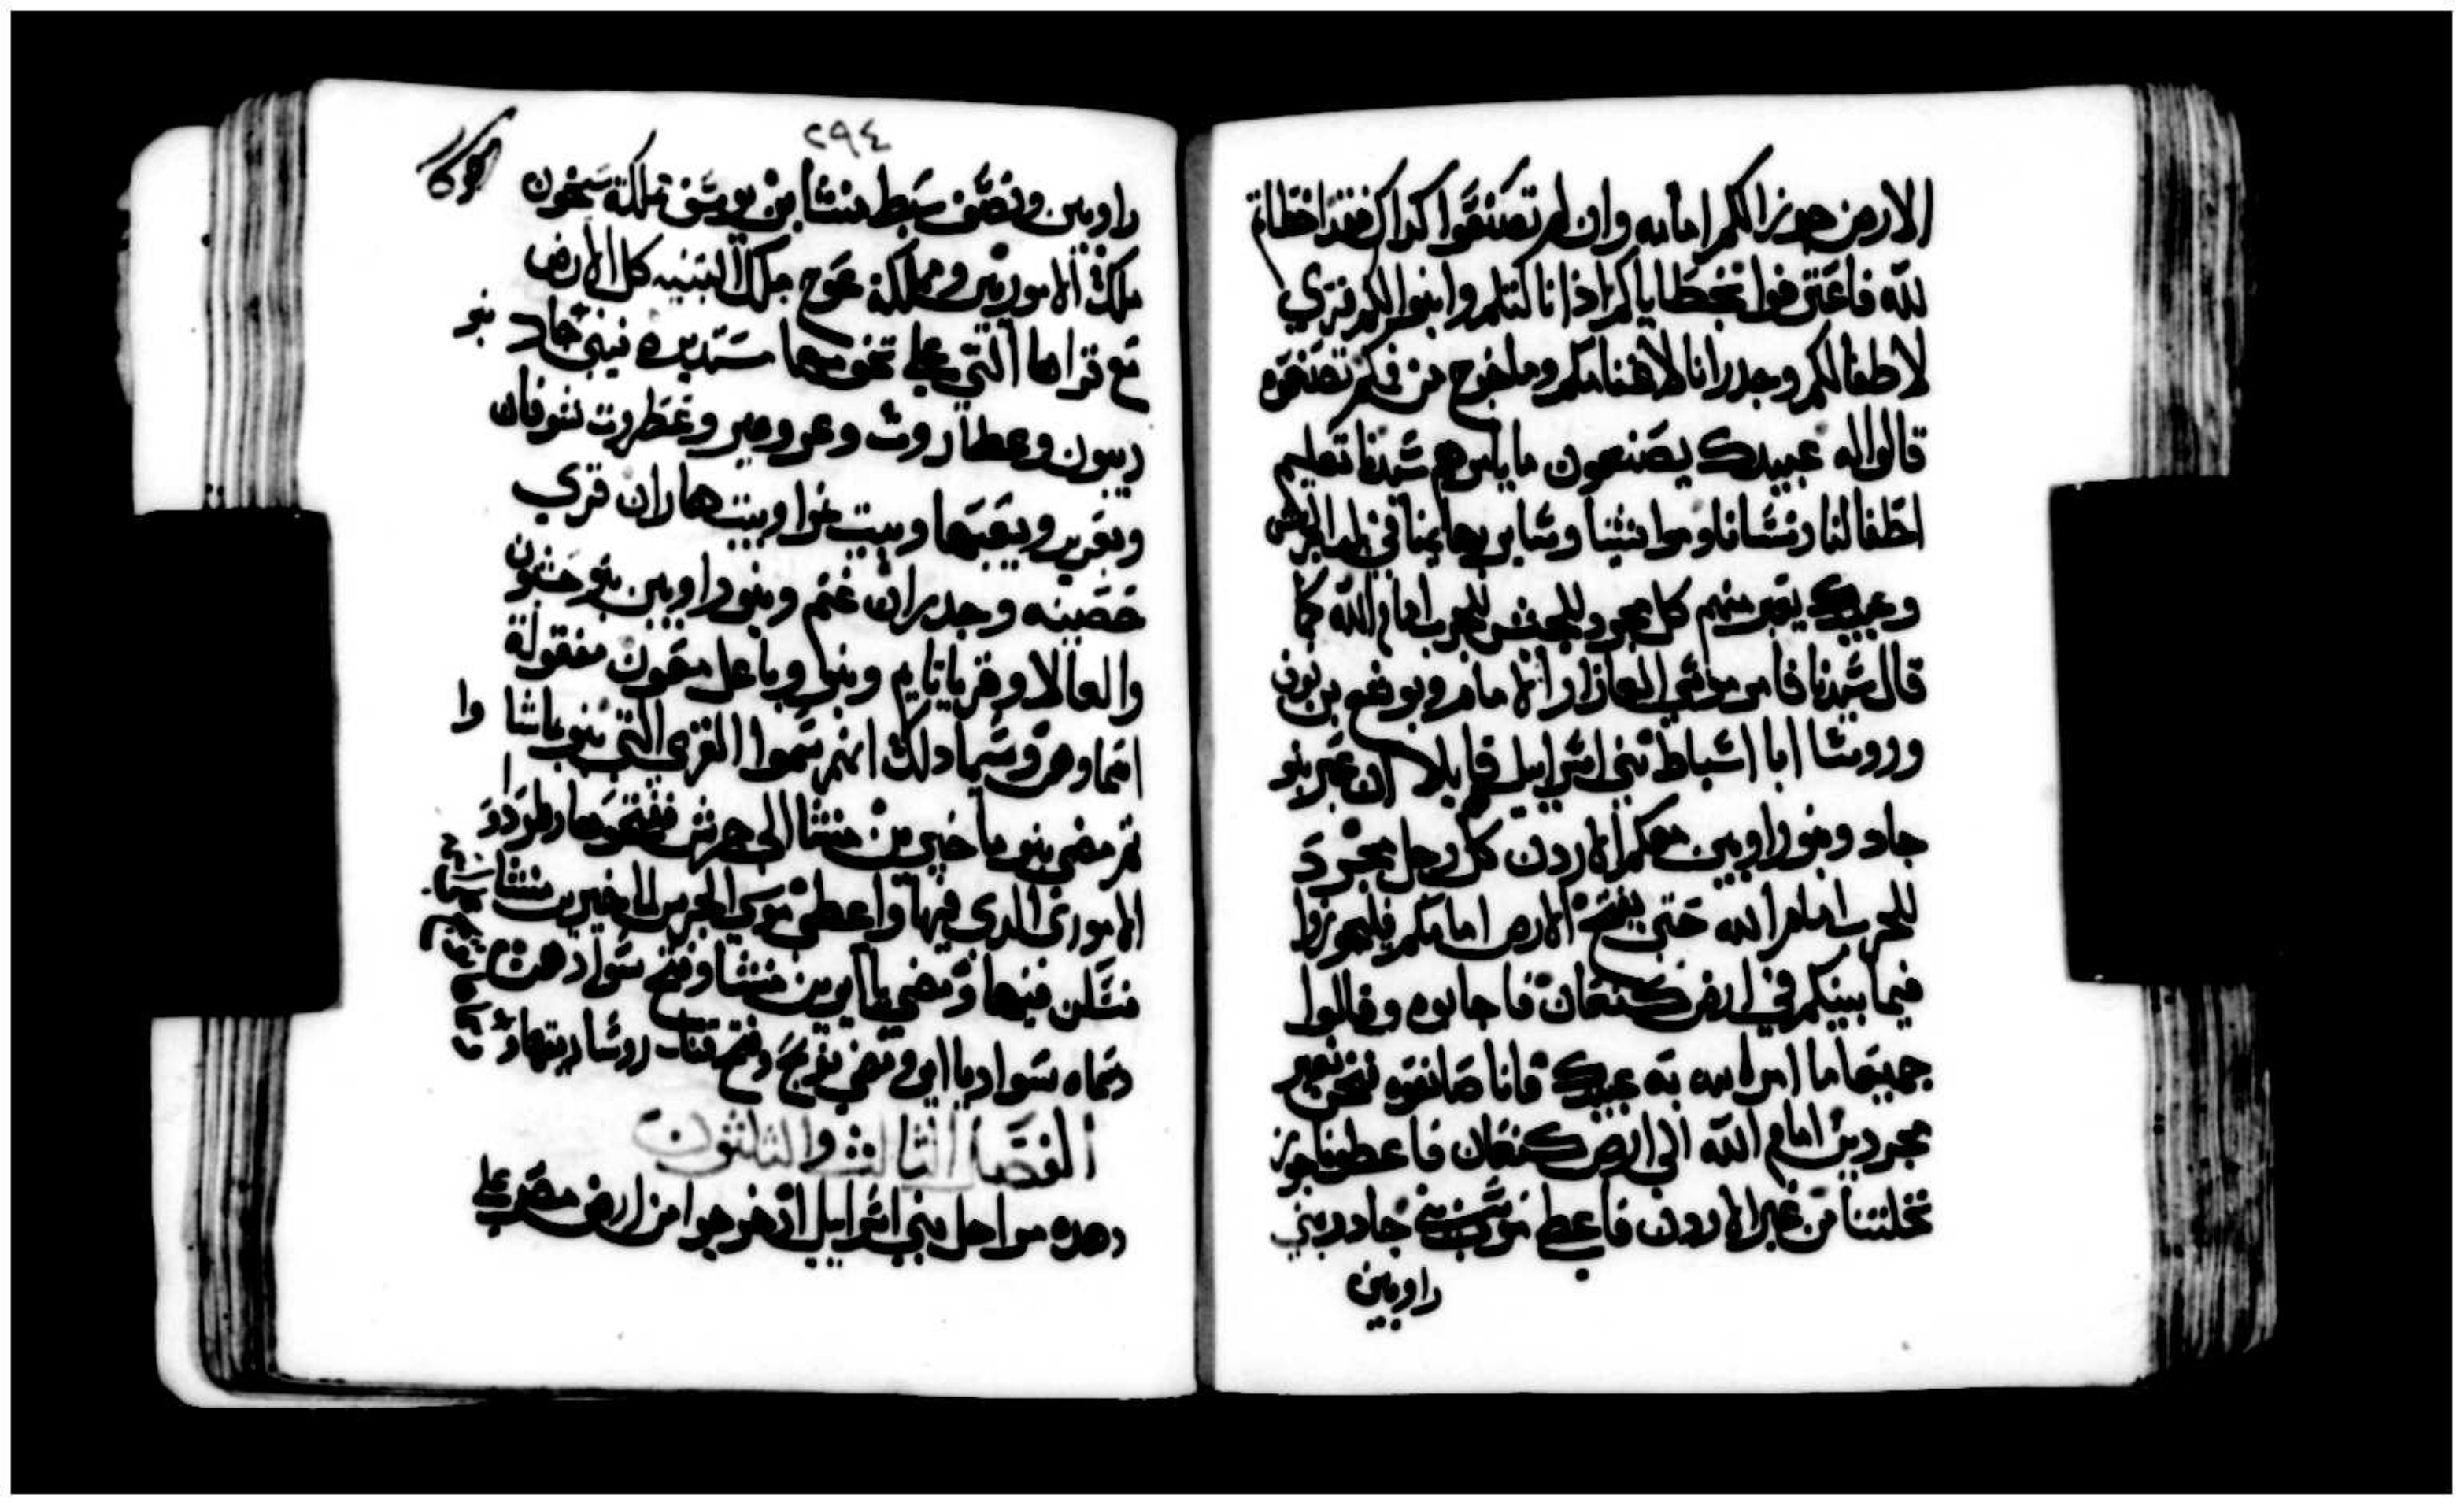 الارض حوزا لكم امامه وان لم تصنعوا كذاك فقد اخطاتم
لله فاعترفوا بخطاياكم اذ انالتكم وابنوا لكم قري
لاطفالكم وجدرانا لاغنامكم وما خرج من فيكم تصنعوه
قالوا له عبيدك يصنعون ما يامرهم سيدنا تعليم
اطفالنا ونسانا ومواشينا وساير بهايمنا في
وعبيدك يعبر منهم كل مجرد للجيش للحرب امام الله كما
قال سيدنا فامر موسي العازار الامام ويوشع بن نون
وروسا ابا اسباط بني اسراييل قايلا ان عبر بنو
جاد وبنو راوبين معكم الاردن كل رجل مجرد
للحرب امام الله حتى يفتح الارض امامكم فليحوزوا
فيما بينكم في ارض كنعان فاجابوه وقالوا
جميعا ما امر الله به عبيدك فانا صانعوه نحن نعبر
مجردين امام الله الى ارض كنعان فاعطونا حوز
نحلتنا من عبر الاردن فاعطي موسي بني جاد وبني
راوبين
٢٩٤
راوبين ونصف سبط منشا بن يوسف مملكة سيحون
ملك الاموريين ومملكة عوج ملك البثنيه كل الارض
مع قراها التي علي تخومها مستديره فبني جاد بنو
ديبون وعطاروث وعروعير وعطروت شوفان
ويعزير ويقبها وبيت نمرا وبيت هاران قري
حصينه وجدران غنم وبنو راوبين بنو حشبون
والعالا وقرياتايم ونبو وباعل معون منقولة
اسماوهن وسبما وذلك انهم سموا القري التي بنو باسما وا
ثم مضي بنو ماخير بن منشا الى جرش ففتحوها وطردوا
الاموري الذي فيها واعطي موسي الجرش لماخير بن منشا
فسكن فيها ومضي ياابر بن منشا وفتح سوادهن
وسماه سواد ياابر ومضي نوبح وفتح قنات ورساديقها
الفصل الثالث والثلثون
وهذه مراحل بني اسراييل اذ خرجوا من ارض مصر علي